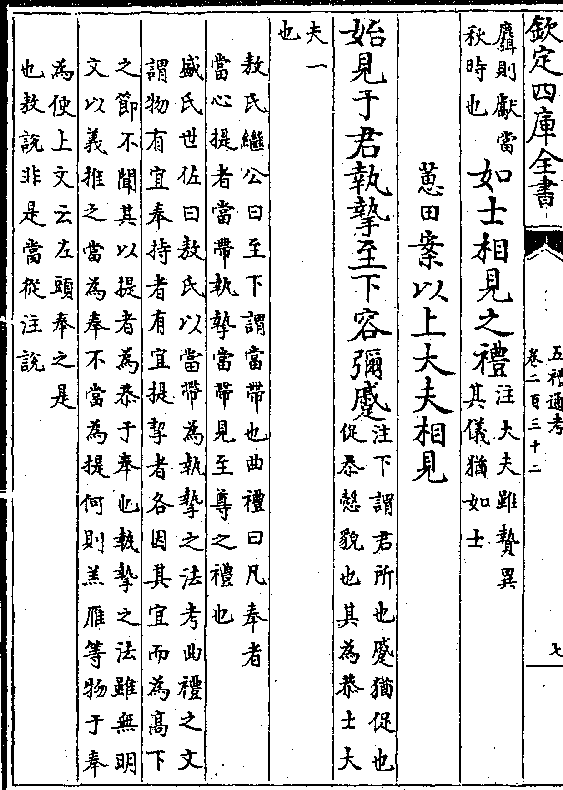 欽定四庫全書
五禮通考
卷二百三十二
七
麛則獻當
秋時也
如士相見之禮
注大夫雖贄異
其儀猶如士
蕙田案以上大夫相見
始見于君執摯至下容彌蹙
注下謂君所也蹙猶促也
促恭慤貌也其為恭士大
夫一
也
敖氏繼公曰至下謂當帶也曲禮曰凡奉者
當心提者當帶執摯當帶見至尊之禮也
盛氏世佐曰敖氏以當帶為執摯之法考曲禮之文
謂物有宜奉持者有宜提挈者各因其宜而為高下
之節不聞其以提者為恭于奉也執摯之法雖無明
文以義推之當為奉不當為提何則羔雁等物于奉
為便上文云左頭奉之是
也敖說非是當從注說